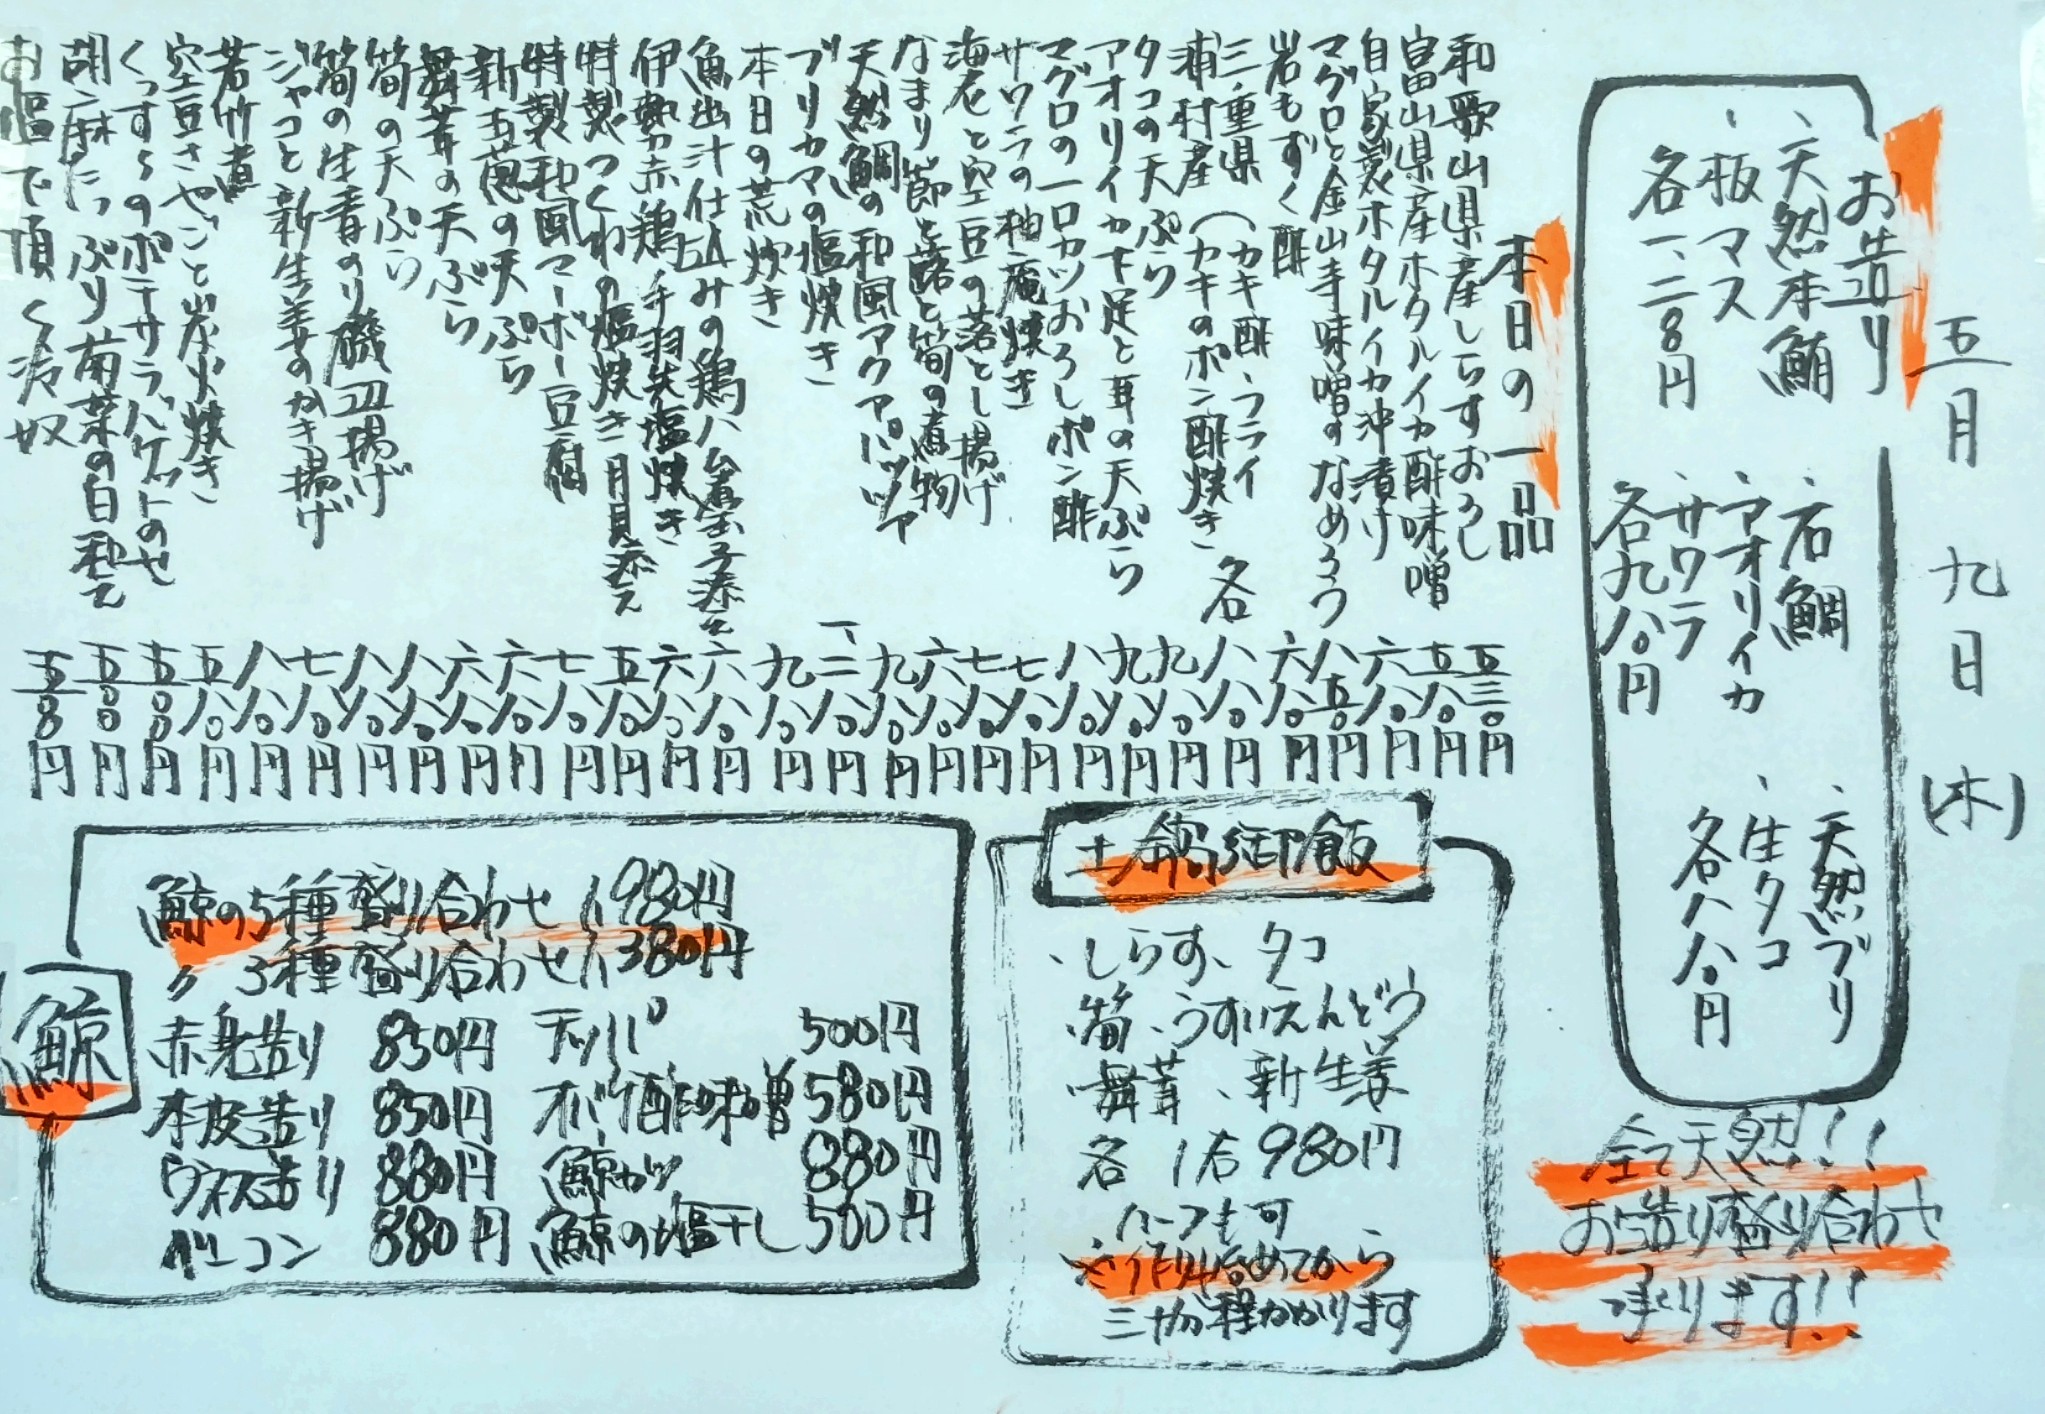 五月九日(木)
お造り
、天然本鮪
、板マス
各一、二八〇円
、石鯛
、アオリイカ
、サワラ
各九八〇円
、天然ブリ
、生タコ
各八八〇円
全て天然!!
お造り盛り合わせ
承ります!!
本日の一品
和歌山県産しらすおろし 五三〇円
富山県産ホタルイカ酢味噌 五八〇円
自家製ホタルイカ沖漬け 六八〇円
マグロと金山寺味噌のなめろう 八五〇円
岩もずく酢 六八〇円
三重県
浦村産(カキ酢、フライ
カキのポン酢焼き 各 八八〇円
タコの天ぷら 九八〇円
アオリイカ下足と茸の天ぷら 九八〇円
マグロの一口カツおろしポン酢 八八〇円
サワラの柚庵焼き 七八〇円
海老と空豆の落とし揚げ 七八〇円
なまり節と蕗と筍の煮物 六八〇円
天然鯛の和風アクアパッツァ 九八〇円
ブリカマの塩焼き 一、二八〇円
本日の荒炊き 九八〇円
魚出汁仕込みの鶏ハム煮玉子添え 六八〇円
伊勢赤鶏手羽先塩焼き 六八〇円
特製つくねの塩焼き月見添え 五八〇円
特製和風マーボー豆腐 七八〇円
新玉葱の天ぷら 六八〇円
舞茸の天ぷら 六八〇円
筍の天ぷら 八八〇円
筍の生青のり磯辺揚げ 八八〇円
ジャコと新生姜のかき揚げ 七八〇円
若竹煮 八八〇円
空豆さやごと炭火焼き 五八〇円
くっすらのポテサラバケットのせ 五八〇円
胡麻たっぷり菊菜の白和え 五〇〇円
お塩で頂く冷奴 五〇〇円
土鍋御飯
、しらす、タコ
、筍、うすいえんどう
、舞茸、新生姜
各1合980円
ハーフも可
※作り始めてから
三十分程かかります
鯨
鯨の5種盛り合わせ1,980円
〃 3種盛り合わせ1,380円
赤身造り 850円 テッパ 500円
本皮造り 850円 オバケ酢味噌 580円
ウネス造り 880円 鯨カツ 880円
ベーコン 880円 鯨の塩干し 500円